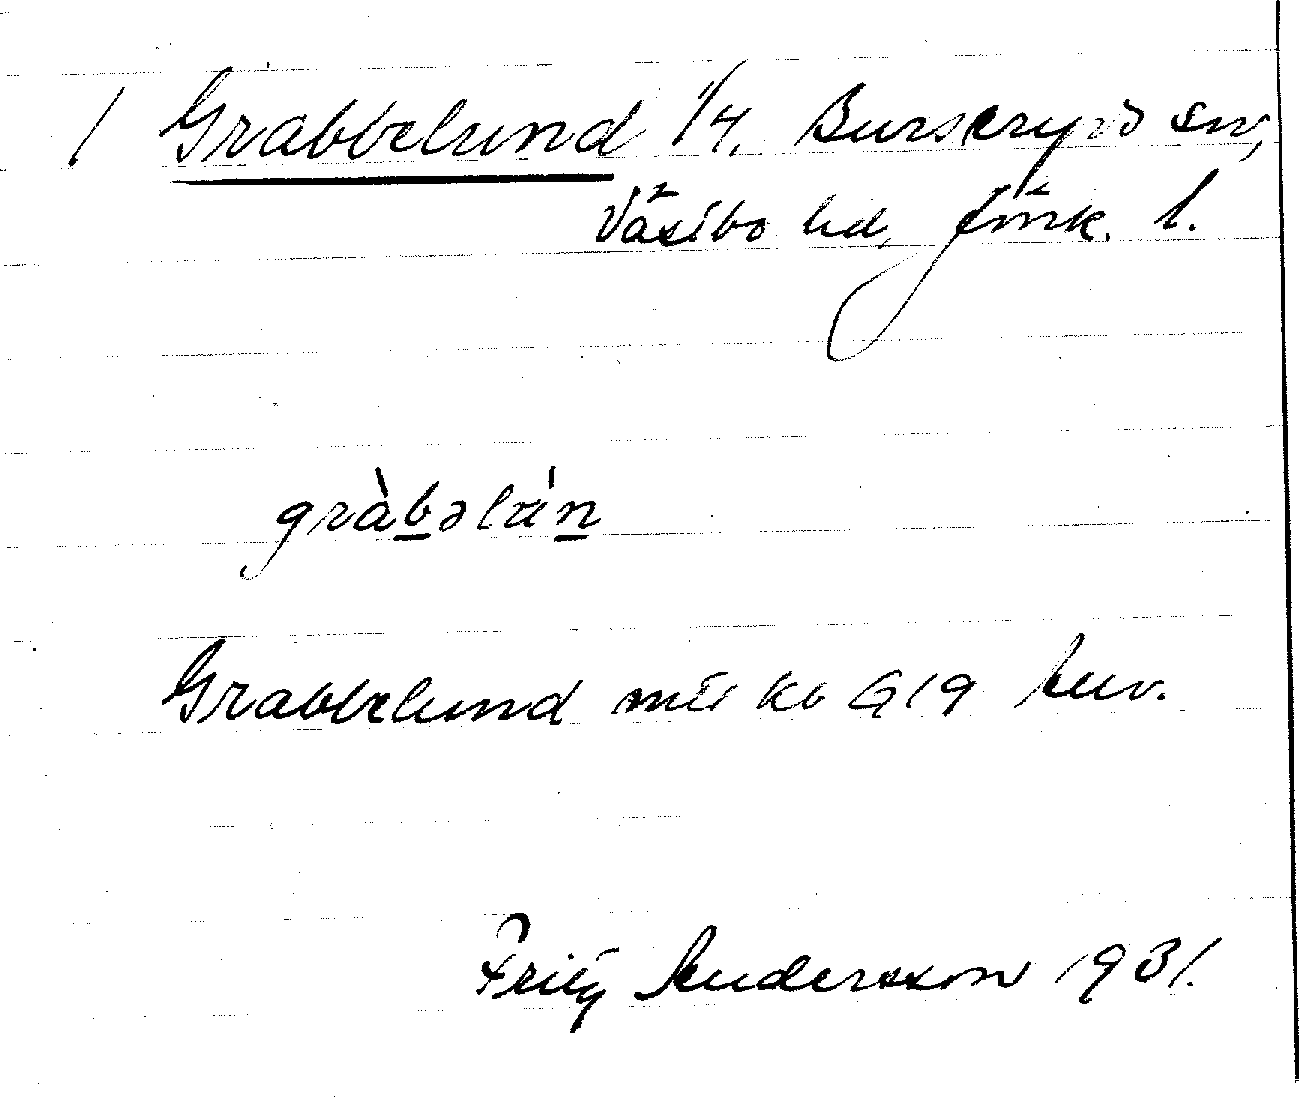 1 Grabbelund 1/4, Burseryds sn,
Västbo hd, Jönk. l.
gràbəlu̇n
Grabbelund mtl kb G19 huv.
Fritz Andersson 1931.